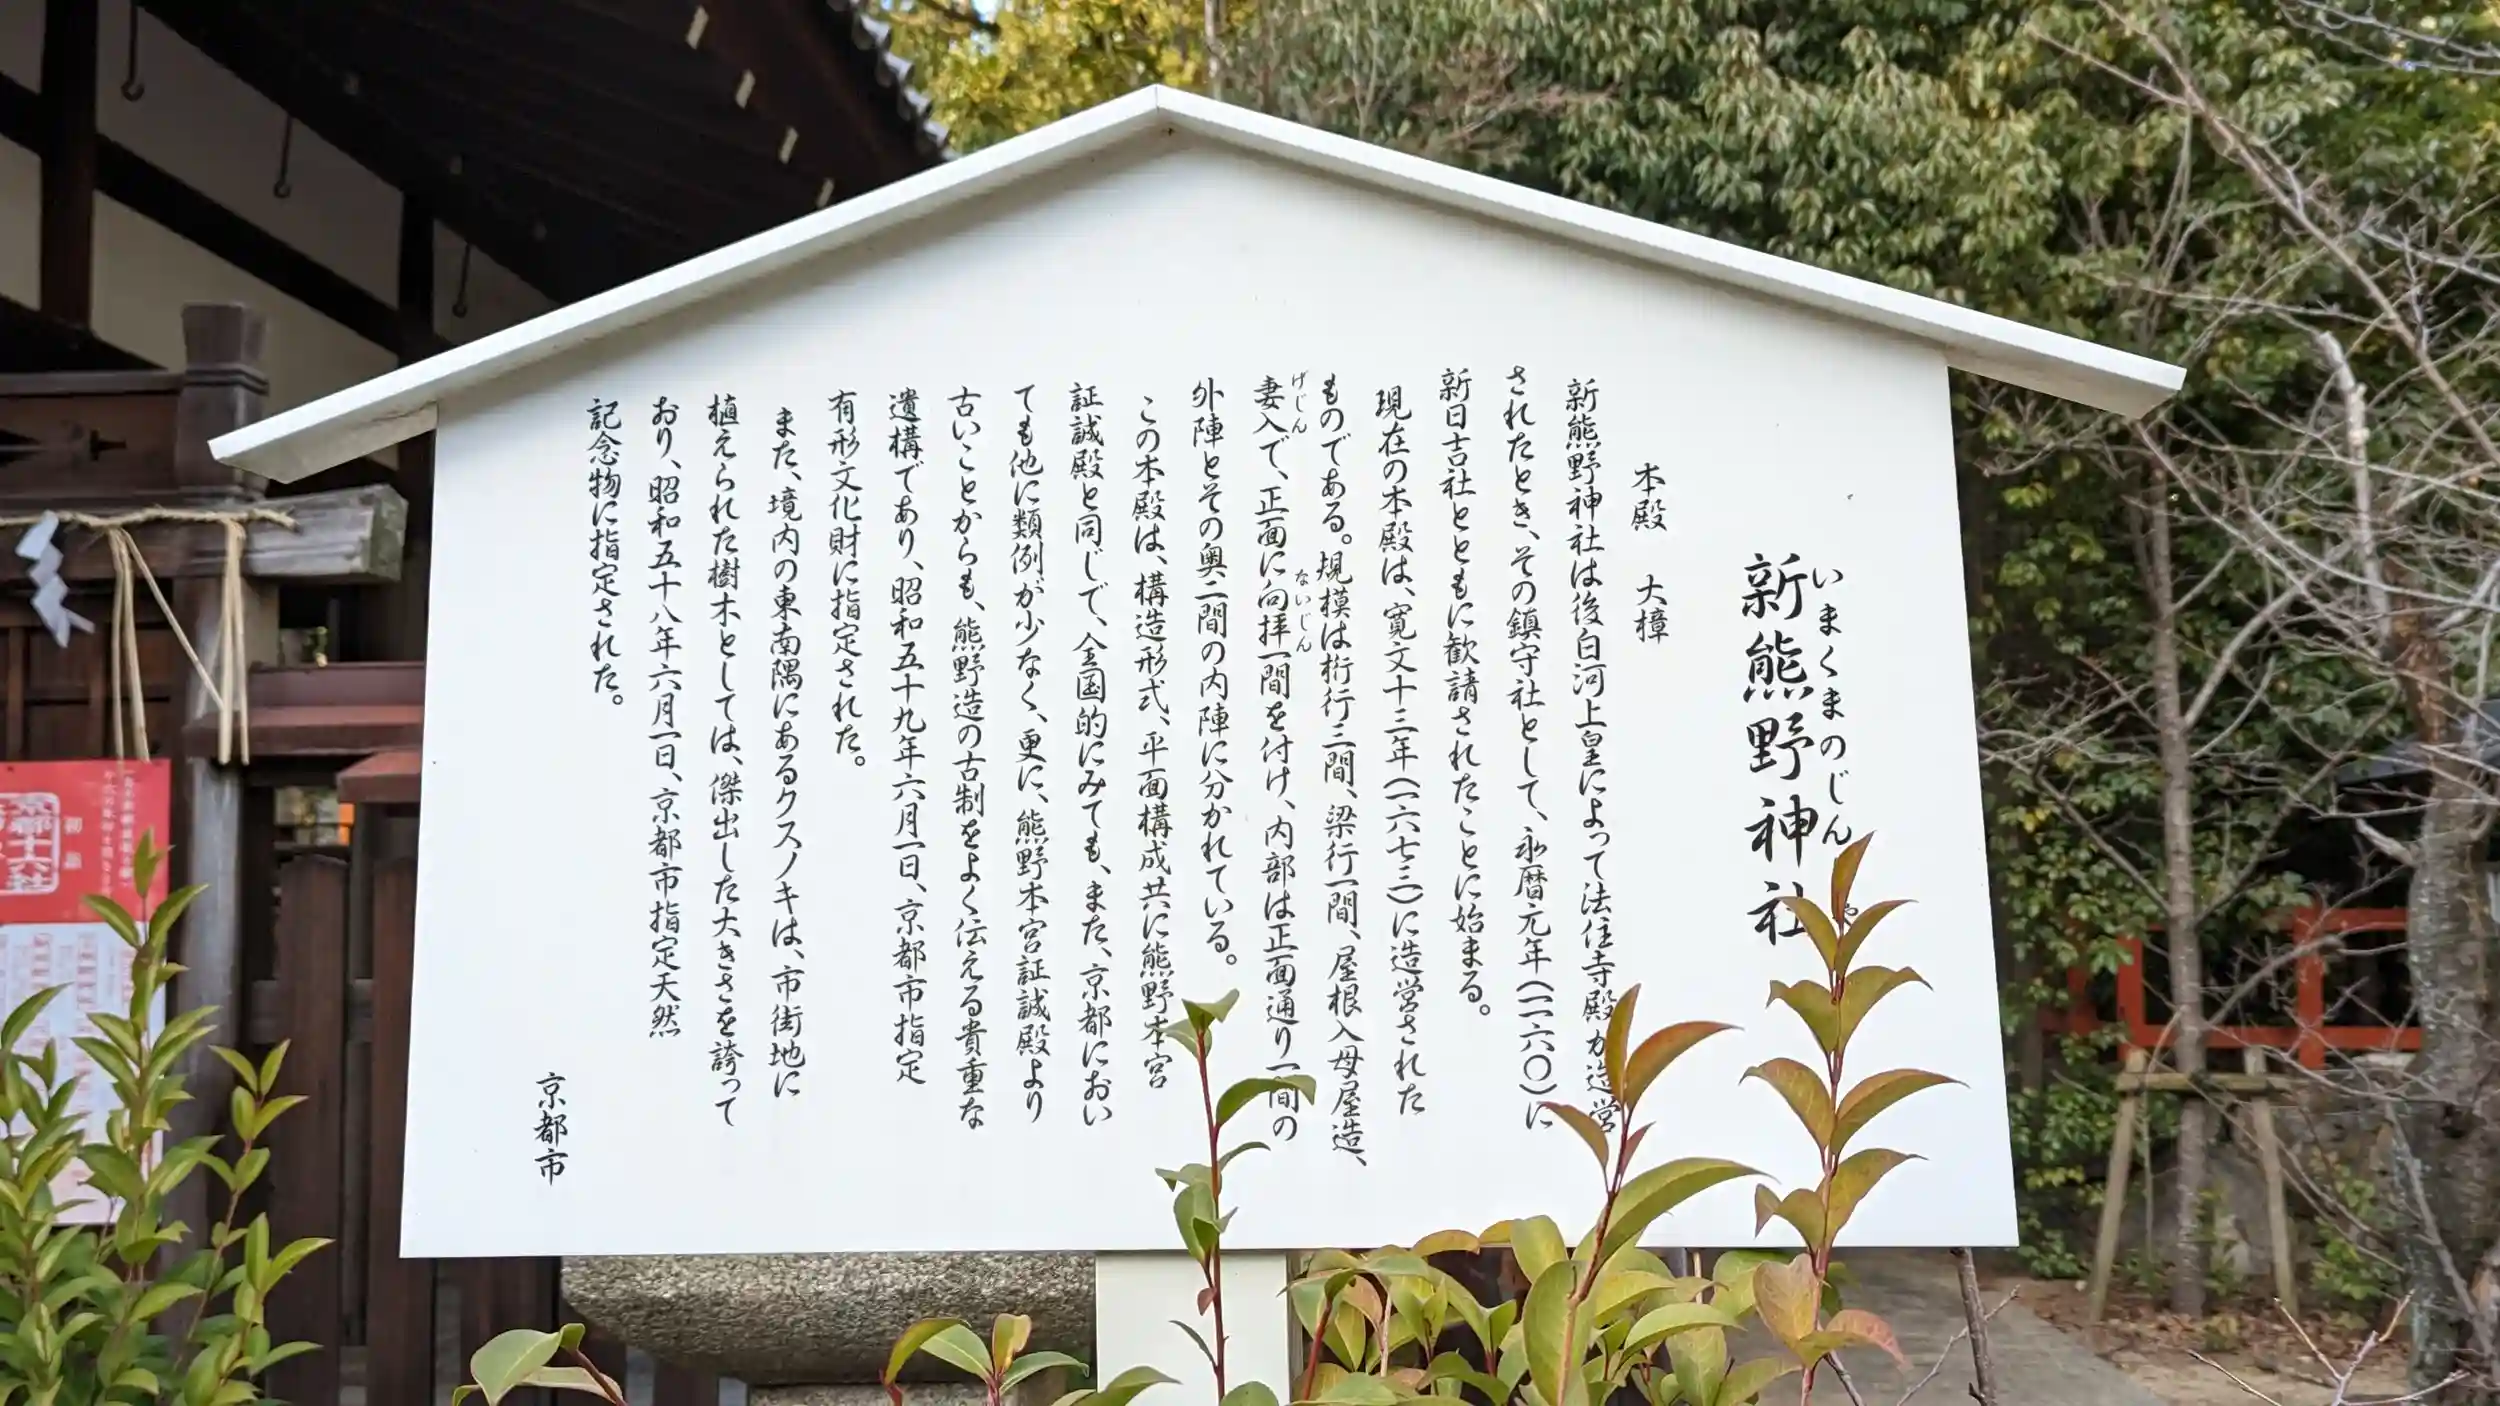 新熊野神社
いまくまのじんや
本殿　大樟
新熊野神社は後白河上皇によって法住寺殿が造営
されたとき、その鎮守社として、永暦元年（一一六〇）に
新日吉社とともに歓請されたことに始まる。
現在の本殿は、寛文十三年（一六七三）に造営された
ものである。規模は桁行三間、梁行一間、屋根入母屋造、
妻入で、正面に向拝一間を付け、内部は正面通り一間の
げじん
ないじん
外陣とその奥二間の内陣に分かれている。
この本殿は、構造形式、平面構成共に熊野本宮
証誠殿と同じで、全国的にみても、また、京都におい
ても他に類例が少なく、更に、熊野本宮証誠殿より
古いことからも、熊野造の古制をよく伝える貴重な
遺構であり、昭和五十九年六月一日、京都市指定
有形文化財に指定された。
また、境内の東南隅にあるクスノキは、市街地に
植えられた樹木としては、傑出した大きさを誇って
おり、昭和五十八年六月一日、京都市指定天然
記念物に指定された。
京都市
京都十六社